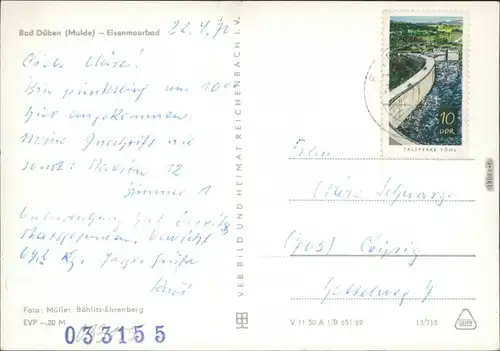 Bad Düben (Mulde) — Eisenmoorbad
22.4.72
Liebe Kläre!
Bin pünktlich um 10⁰⁰
hier angekommen.
Meine Anschrift wie
sonst: Station 12
Zimmer 1
Untersuchung hat bereits
stattgefunden. Gewicht
69,5 Kg.
Foto: Müller, Böhlitz-Ehrenberg
EVP —,20 M
033155
VEB BILD UND HEIMAT REICHENBACH i. V.
10
DDR
TALSPERRE PÖHL
Frau
Kläre Schwarz
(703) Leipzig
V 11 50 A 1/B 651/69
13/718